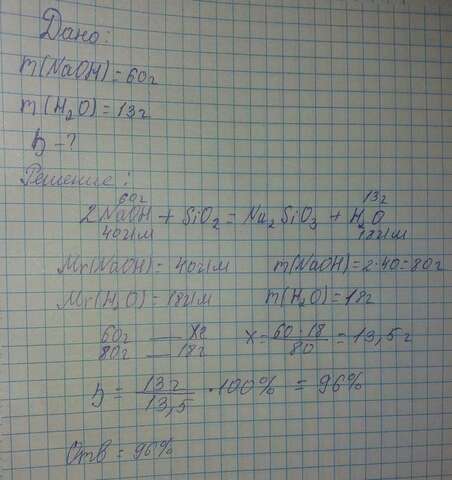 Дано:
m(NaOH)=60г
m(H₂O)=13г
η-?
Решение:
60г 13г
2NaOH + SiO₂ = Na₂SiO₃ + H₂O
40г/м 18г/м
Mr(NaOH)=40г/м m(NaOH)=2·40=80г
Mr(H₂O)=18г/м m(H₂O)=18г
60г — xг x=60·18/80=13,5г
80г — 18г
η = 13г/13,5 ·100% = 96%
Отв = 96%